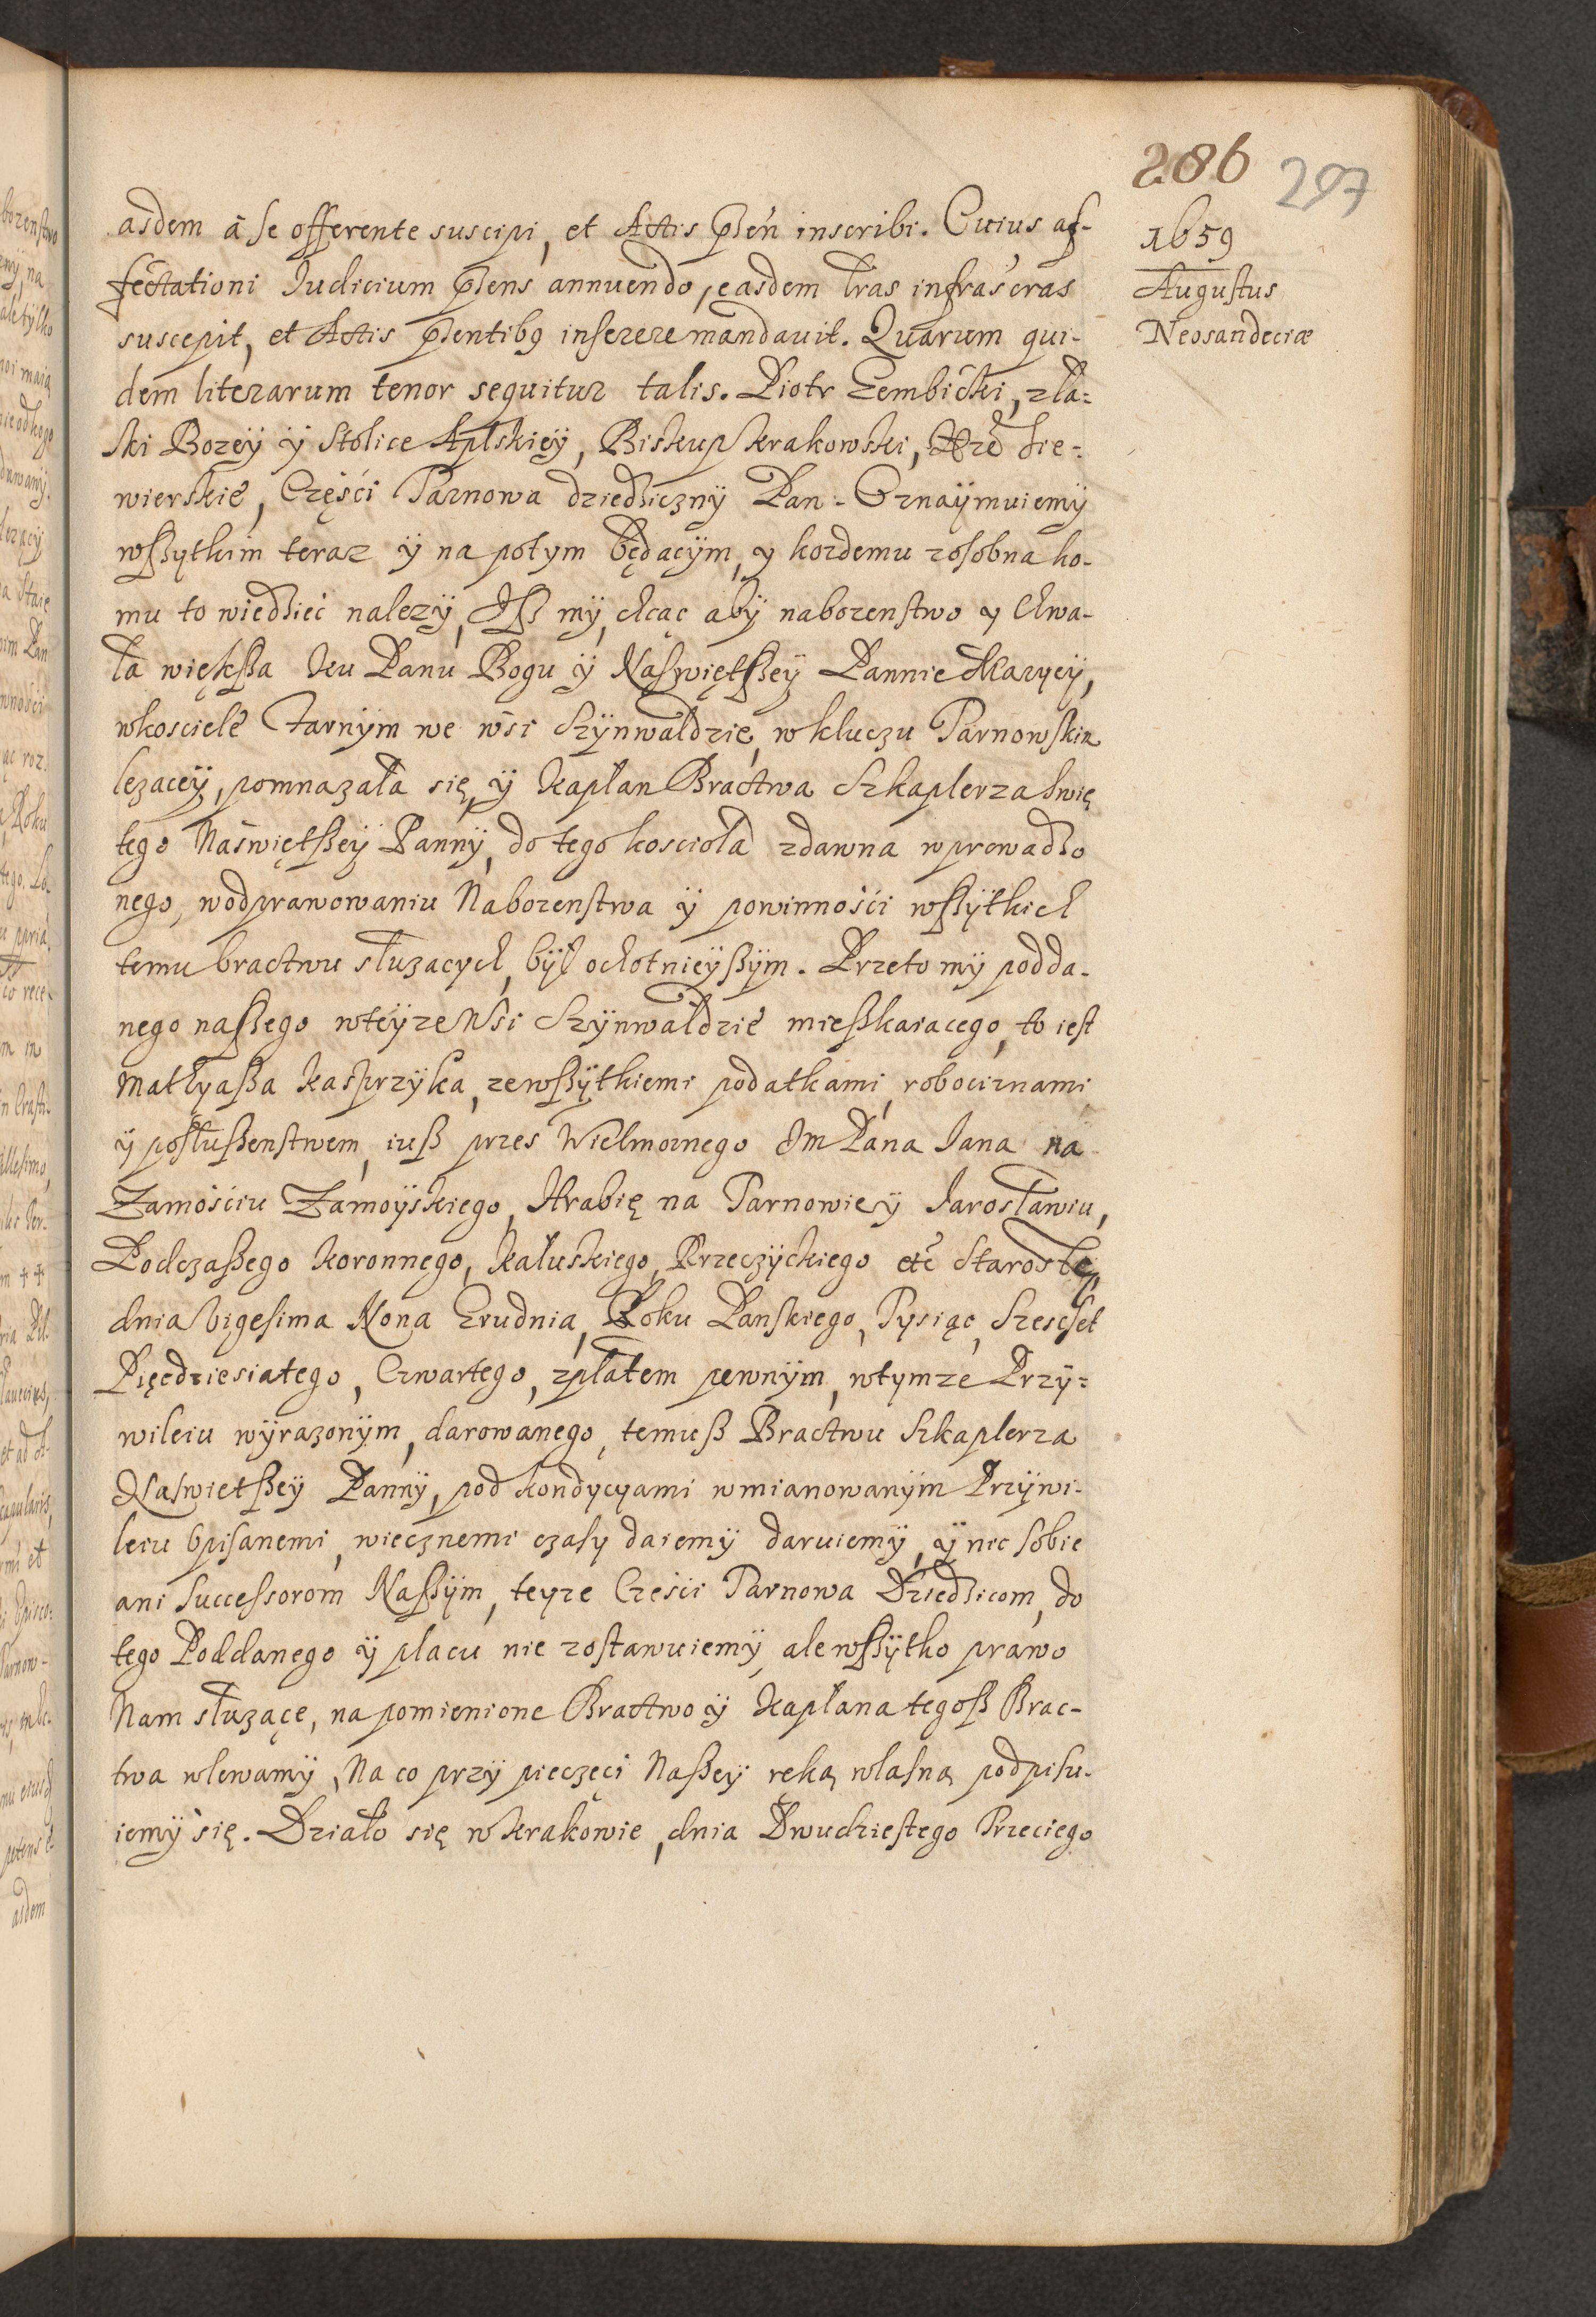 286 297
1659
Augustus
Neosandeciæ
asdem à se offerente suscipi, et Actis pñsen inscribi. Cuius af-
fectationi Iudicium pñsens annuendo, easdem lras infrascras
suscepit, et Actis pñsentibꝯ inserere mandauit. Quarum qui-
dem literarum tenor sequitur talis. Piotr Gembicki, z łas-
ki Bozey ÿ Stolice Aplskiey, Biskup Krakowski, Xzę Sie-
wierskie, Części Tarnowa dziedzicznÿ Pan. Oznaÿmuiemÿ
wszytkim teraz ÿ na potym będącÿm, y kozdemu zosobna ko-
mu to wiedzieć nalezÿ, Isz mÿ, chcąc abÿ naborenstwo y chwa-
ła większa ku Panu Bogu ÿ Naświętszeÿ Pannie Maryeÿ,
wkosciele Farnÿm we wsi Szÿnwałdzie, w kluczu Tarnowskim
lezaceÿ, pomnazała się, ÿ Kapłan Bractwa Szkaplerza Swię
tego Naświętszeÿ Pannÿ, do tego kosciola zdawna wprowadzo
nego, wodprawowaniu Nabozenstwa ÿ powinności wszÿtkich
temu bractwu słuzacych, był ochotnieÿszÿm. Przeto mÿ podda-
nego naszego wteÿze Wsi Szÿnwałdzie mieszkaiacego, to iest
Mathyasza Kasprzyka, zewszÿtkiemi podatkami, robociznami
ÿ posłuszenstwem, iusz przes Wielmoznego Im Pana Jana na
Zamościu Zamoÿskiego, Hrabię na Tarnowie ÿ Jarosławiu,
Podczaszego Koronnego, Kałuskiego, Rzeczÿckiego etc Starostę
dnia Vigesima Nona Grudnia, Roku Panskiego, Tysiąc, Szescset
Pięcdziesiatego, Czwartego, zpłatem pewnÿm, wtymze Przÿ-
wileiu wÿrazonÿm, darowanego, temusz Bractwu Szkaplerza
Naswietszeÿ Pannÿ, pod kondycyami wmianowanÿm Przÿwi-
leiu opisanemi, wiecznemi czasy daiemÿ daruiemÿ, ÿ nic sobie
ani Successorom Naszÿm, teyze Cześci Tarnowa Dziedzicom, do
tego Poddanego ÿ placu nie zostawuiemÿ, ale wszÿtko prawo
Nam słuzące, na pomienione Bractwo ÿ Kapłana tegosz Brac-
twa wlewamÿ, Na co przÿ pieczęci Naszeÿ ręką własną podpisu-
iemÿ się. Działo się w Krakowie, dnia Dwudziestego Trzeciego